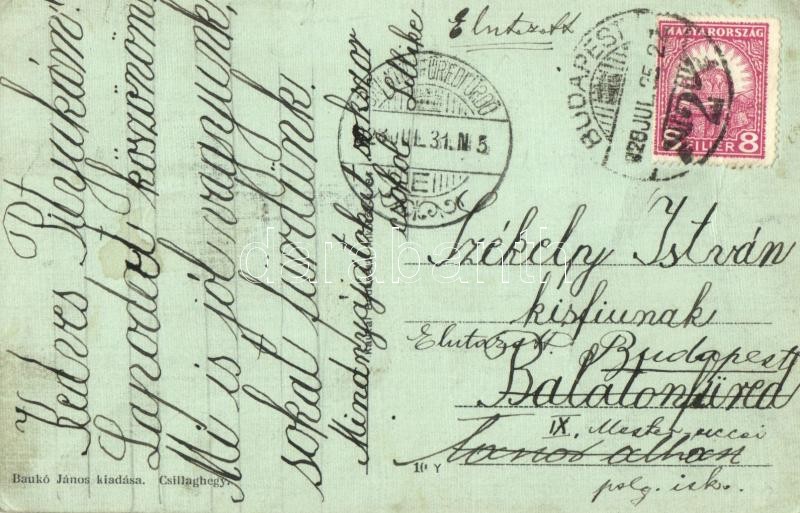 Kedves Pityukám!
Lapodat köszönöm,
Mi is jól vagyunk,
sokat fürdünk.
Minnyájatokat sokszor
csókol Lillike
Elutazott
MAGYARORSZÁG
8 FILLÉR
BUDAPEST
928 JUL. 25.
JUL. 31. N 5
Székely István
kisfiunak
Elutazott. Budapest
Balatonfüred
IX. Mester uccai
polg. isk.
Baukó János kiadása. Csillaghegy.
10 Y
darabanth